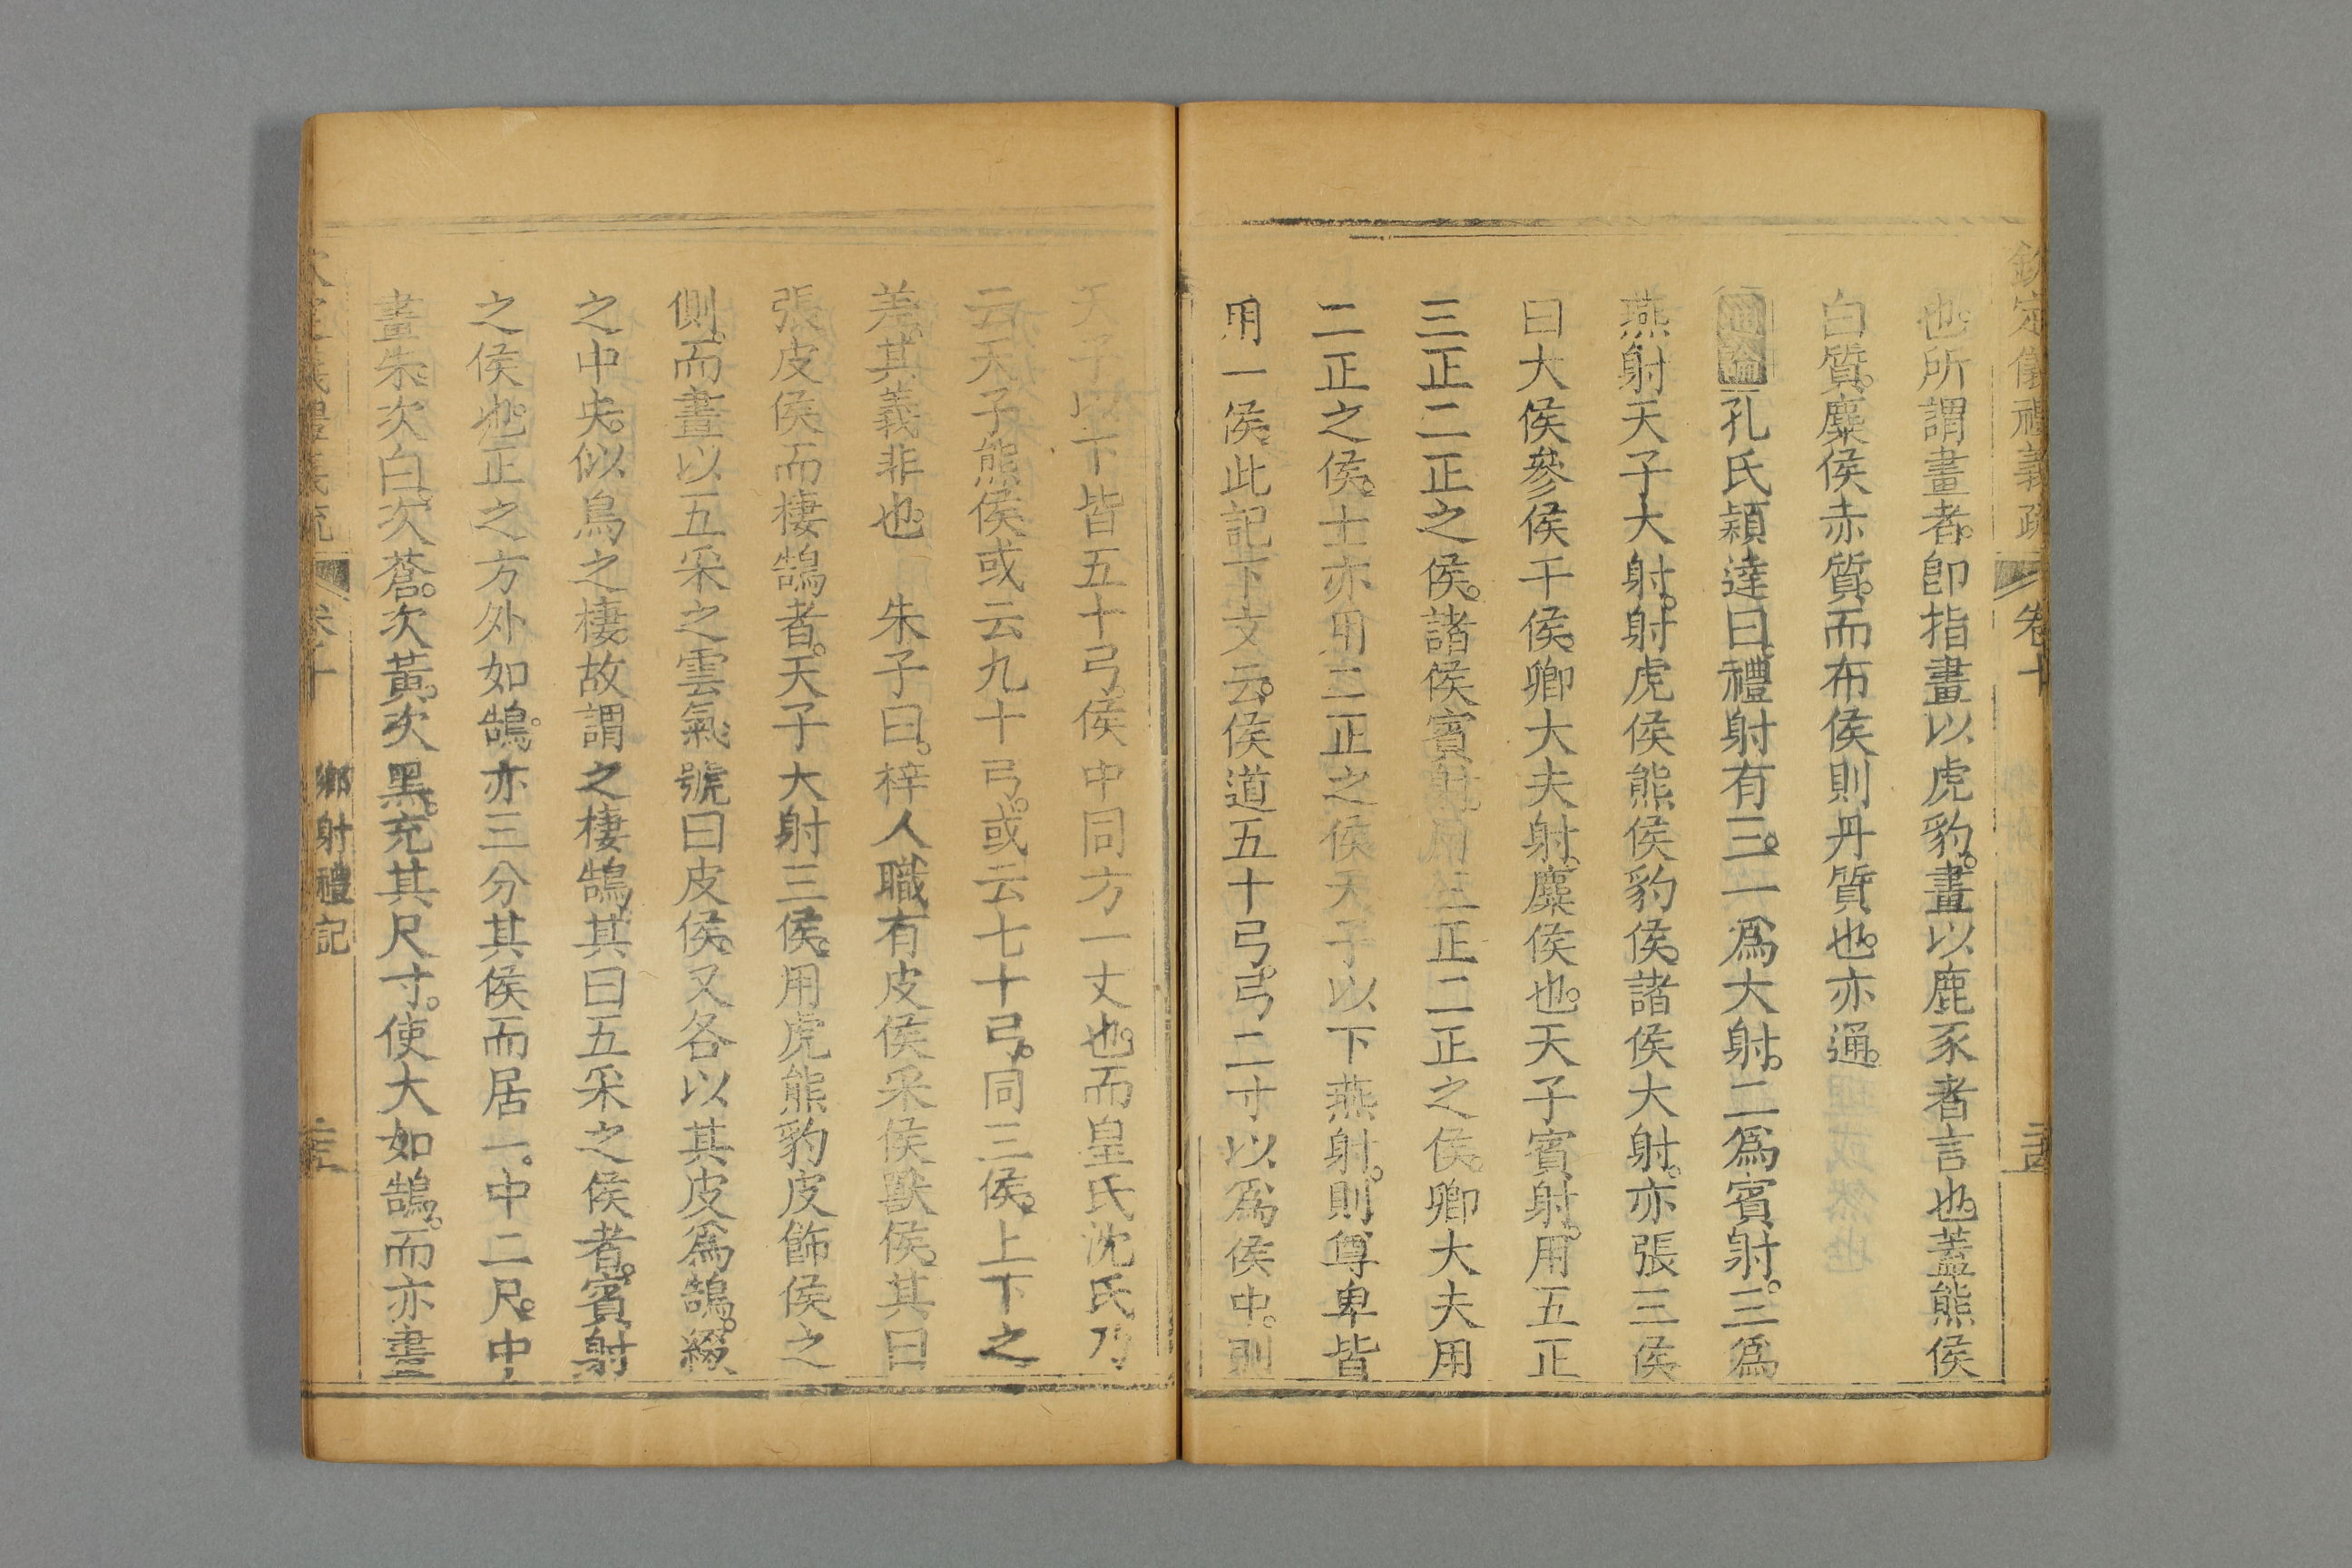 欽定儀禮義疏 卷十
也。所謂畫者。卽指畫以虎豹。畫以鹿豕者言也。蓋熊侯
白質。麋侯赤質。而布侯則丹質也。亦通。
通論孔氏穎達曰。禮射有三。一爲大射。二爲賓射。三爲
燕射天子大射。射虎侯熊侯豹侯。諸侯大射。亦張三侯
曰大侯參侯干侯。卿大夫射。麋侯也。天子賓射。用五正
三正二正之侯。諸侯賓射用三正二正之侯。卿大夫用
二正之侯。士亦用二正之侯天子以下燕射。則尊卑皆
用一侯。此記下文云。侯道五十弓。弓二寸以爲侯中。則
天子以下皆五十弓。侯中同方一丈也。而皇氏沈氏乃
云天子熊侯或云九十弓。或云七十弓。同三侯。上下之
差。其義非也。 朱子曰。梓人職有皮侯采侯獸侯。其曰
張皮侯而棲鵠者。天子大射三侯。用虎熊豹皮飾侯之
側。而畫以五采之雲氣號曰皮侯。又各以其皮爲鵠。綴
之中央。似鳥之棲。故謂之棲鵠。其曰五采之侯者。賓射
之侯也。正之方外如鵠。亦三分其侯而居一。中二尺。中
畫朱。次白。次蒼。次黃。次黑。充其尺寸。使大如鵠。而亦畫
卷十 鄉射禮記